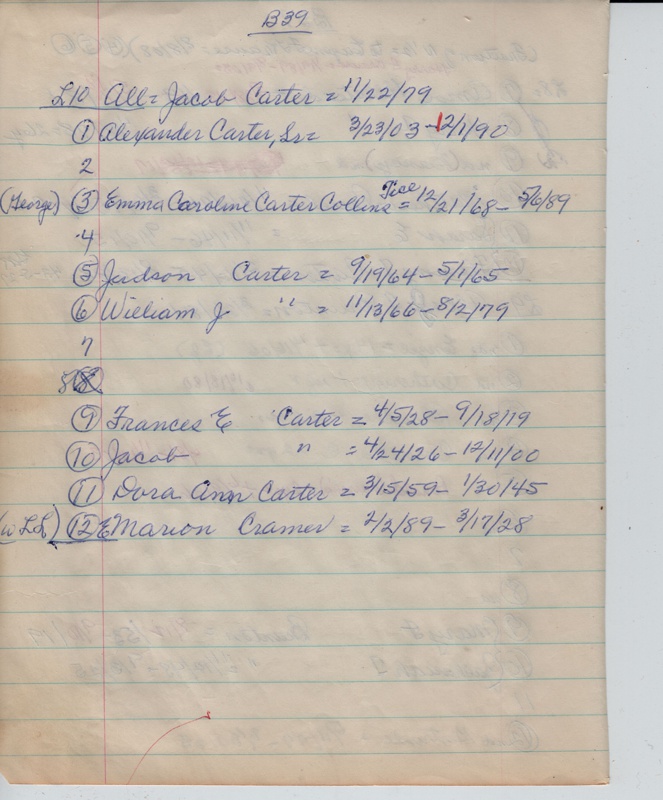 B39
L10 All = Jacob Carter = 11/22/79
① Alexander Carter, Sr = 3/23/03 - 12/1/90
2
(George) ③ Emma Caroline Carter Collins Tice = 12/21/68 - 5/6/89
4
⑤ Judson Carter = 9/19/64 - 5/1/65
⑥ William J " = 11/13/66 - 8/2/79
7
8
⑨ Frances E Carter = 4/5/28 - 9/18/19
⑩ Jacob " = 4/24/26 - 12/11/00
⑪ Dora Ann Carter = 3/15/59 - 1/30/45
⑫ E Marion Cramer = 2/2/89 - 3/17/28